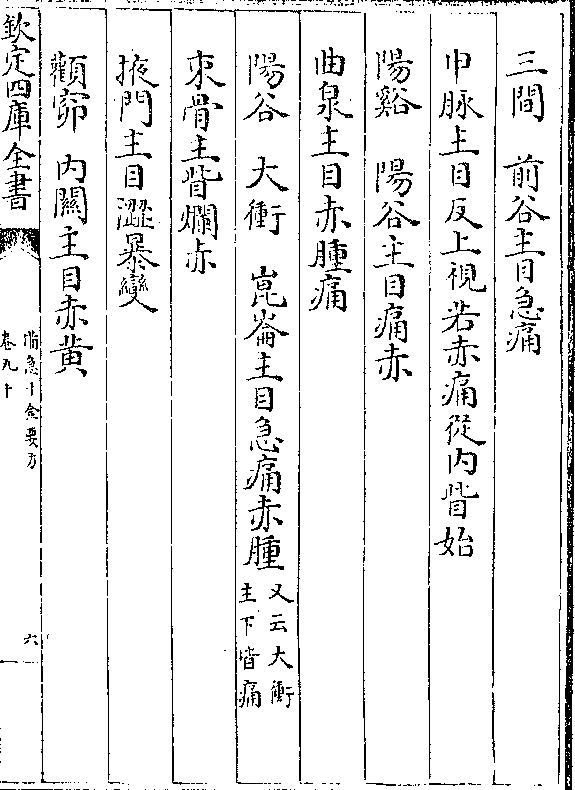 三間　前谷主目急痛
申脉主目反上視若赤痛從内眥始
陽谿　陽谷主目痛赤
曲泉主目赤腫痛
陽谷　大衝　崑崙主目急痛赤腫又云大衝主下眥痛
束骨主眥爛赤
掖門主目澀暴變
顴窌　内關主目赤黄
欽定四庫全書
備急千金要方
卷九十
六